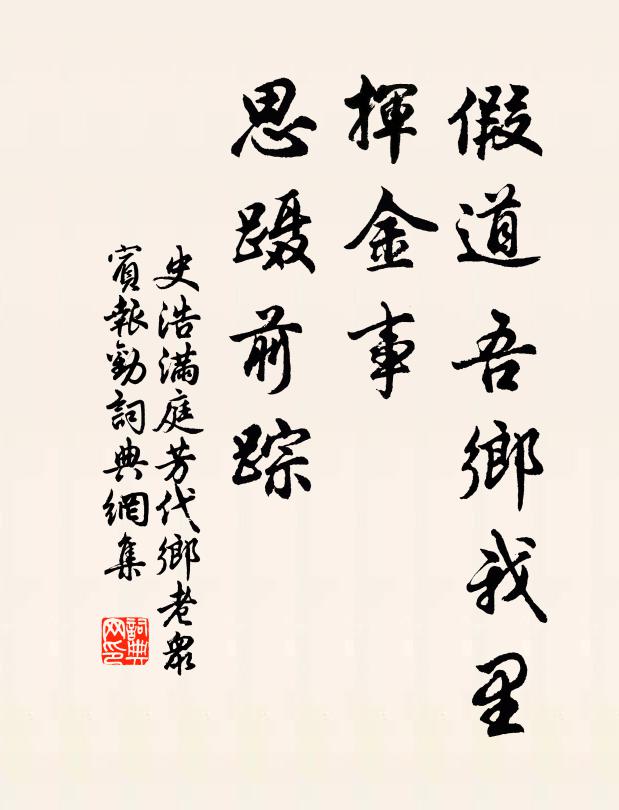 假道吾鄉我里
揮金事
思蹑前踪
史浩滿庭芳代鄉老眾
賓報勸詞典網集
詞典
网印